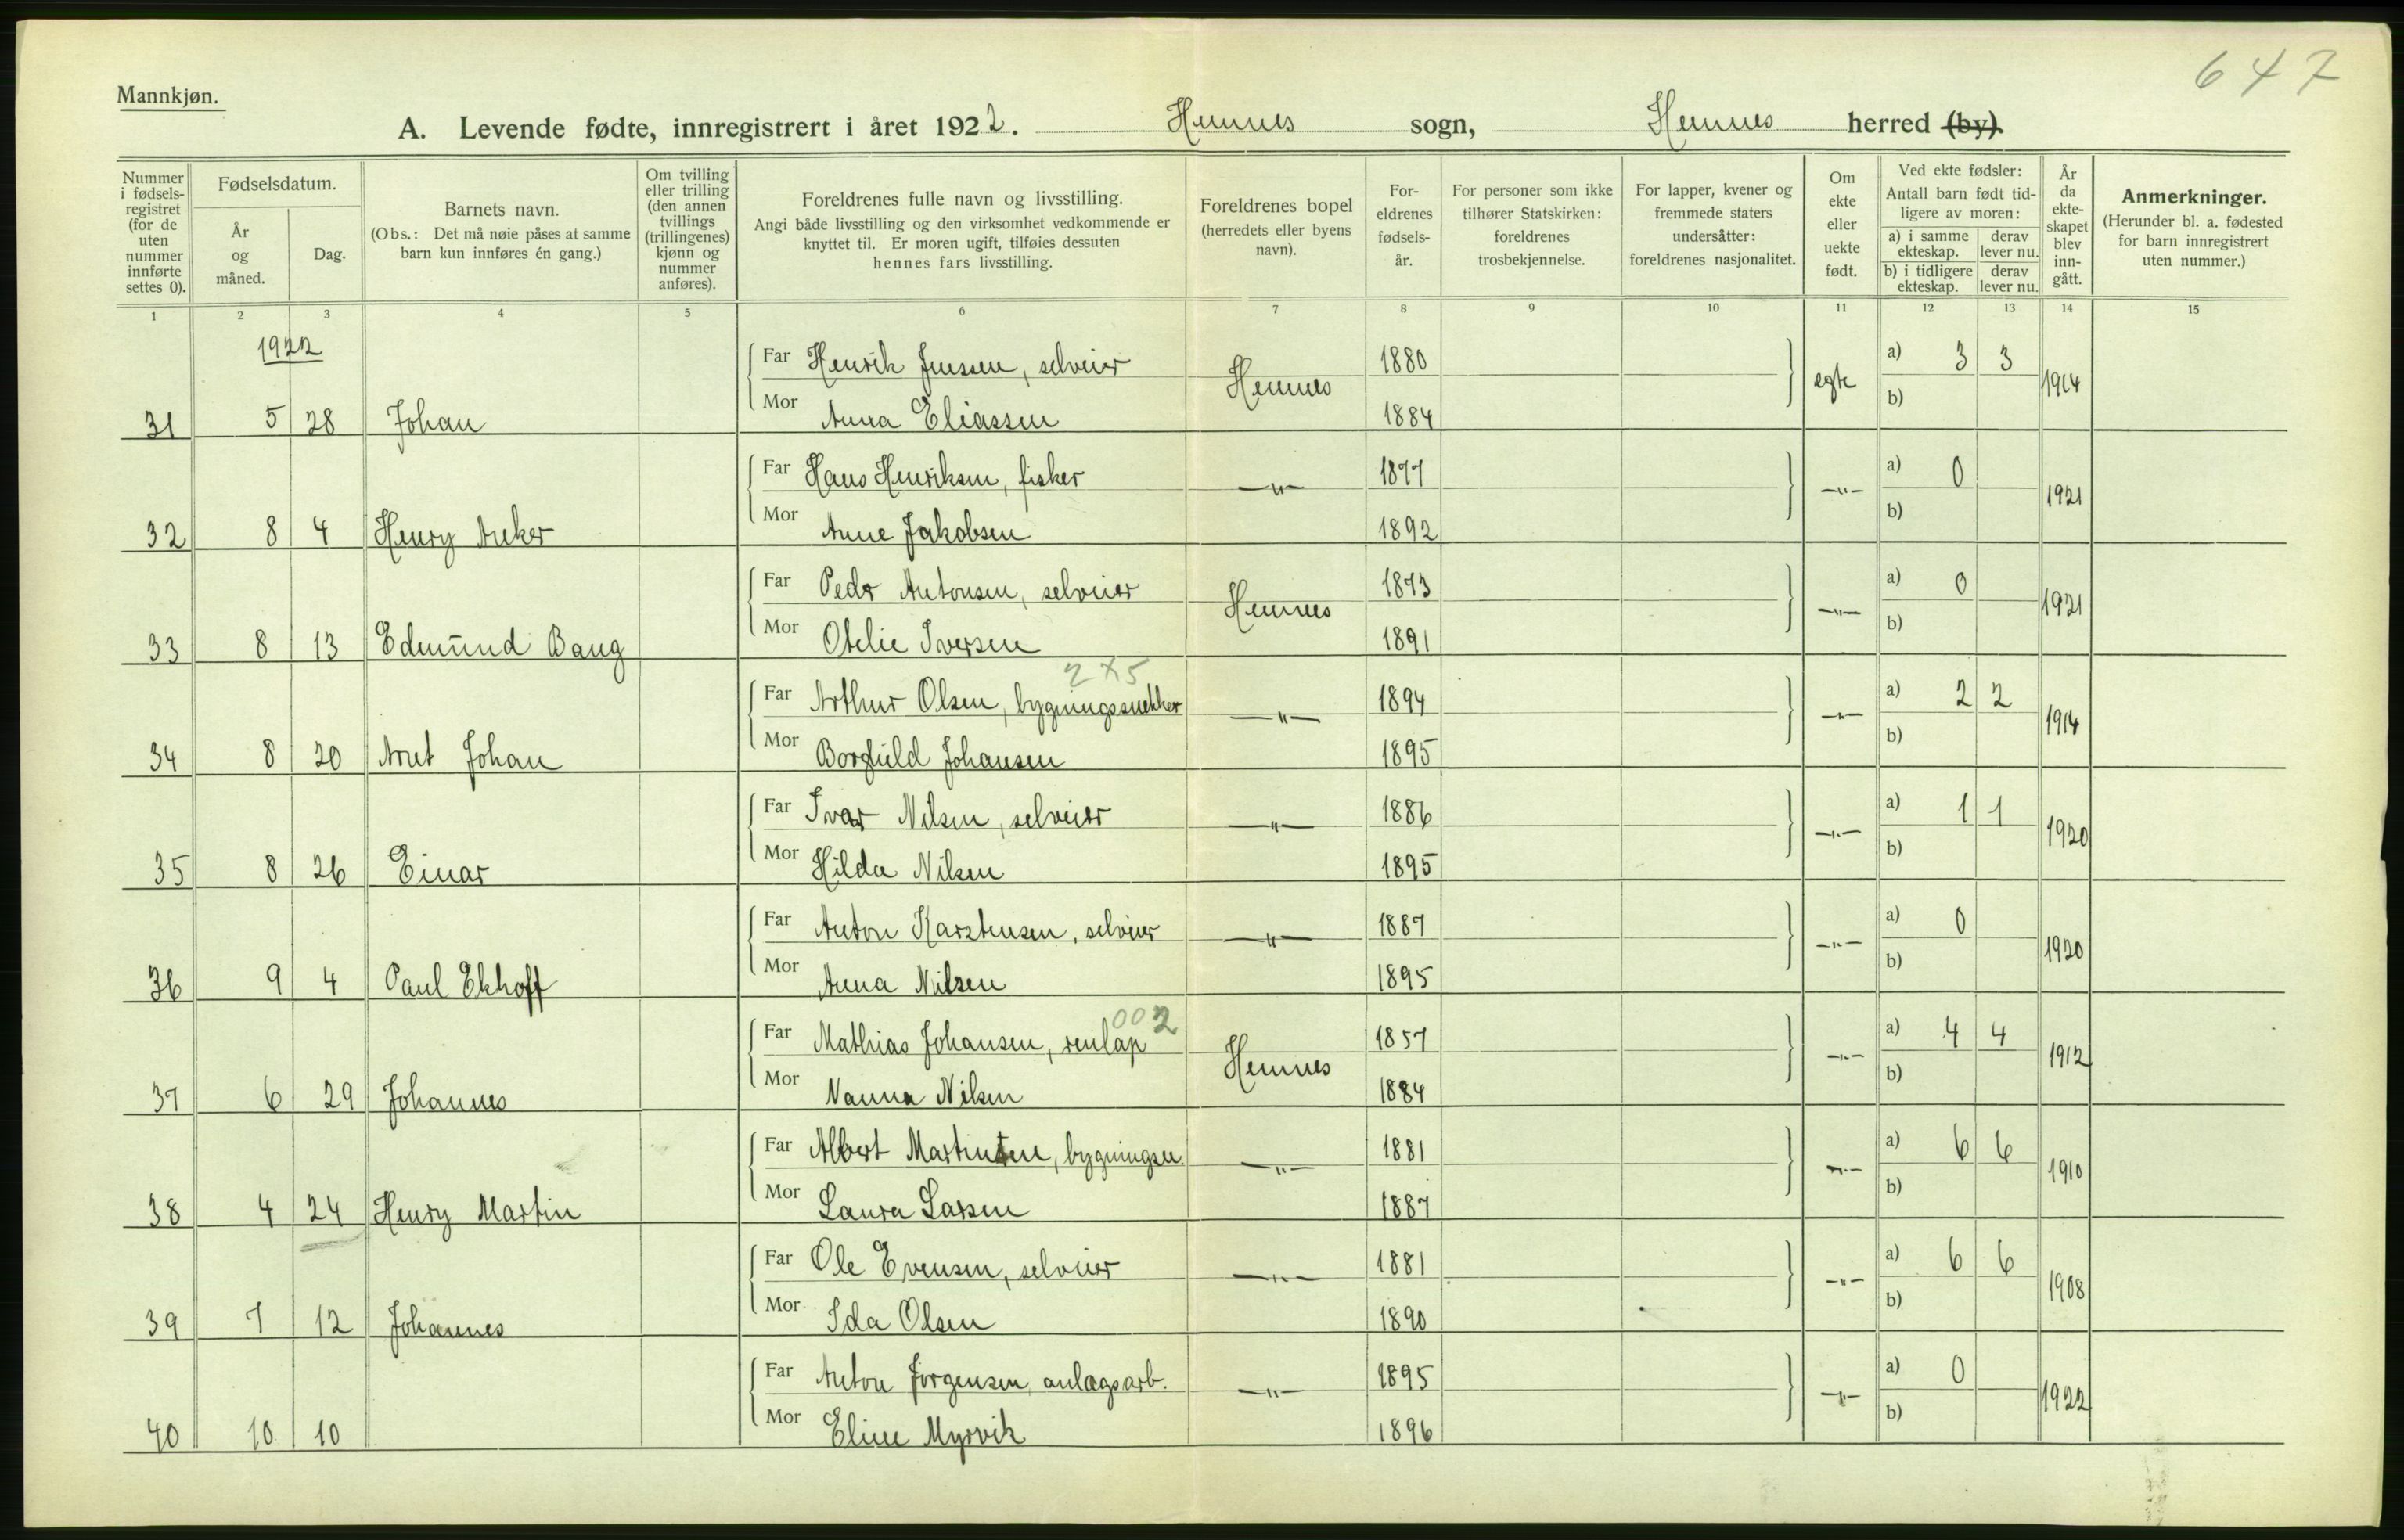 647
Mannkjøn.
A. Levende fødte, innregistrert i året 1922. Hemnes sogn, Hemnes herred (by).
Nummer i fødsels-registret (for de uten nummer innførte settes 0).
Fødselsdatum.
År og måned.
Dag.
Barnets navn.
(Obs.: Det må nøie påses at samme barn kun innføres én gang.)
Om tvilling eller trilling (den annen tvillings (trillingenes) kjønn og nummer anføres).
Foreldrenes fulle navn og livsstilling.
Angi både livsstilling og den virksomhet vedkommende er knyttet til. Er moren ugift, tilføies dessuten hennes fars livsstilling.
Foreldrenes bopel (herredets eller byens navn).
For-eldrenes fødsels-år.
For personer som ikke tilhører Statskirken: foreldrenes trosbekjennelse.
For lapper, kvener og fremmede staters undersåtter: foreldrenes nasjonalitet.
Om ekte eller uekte født.
Ved ekte fødsler: Antall barn født tid-ligere av moren:
a) i samme ekteskap. derav lever nu.
b) i tidligere ekteskap. derav lever nu.
År da ekte-skapet blev inn-gått.
Anmerkninger.
(Herunder bl. a. fødested for barn innregistrert uten nummer.)
1 2 3 4 5 6 7 8 9 10 11 12 13 14 15
1922
Far Henrik Jenssen, selveier Hemnes 1880 egte a) 3 3 1914
31 5 28 Johan Mor Anna Eliassen 1884 b)
Far Hans Henriksen, fisker —"— 1877 —"— a) 0 1921
32 8 4 Henry Anker Mor Anne Jakobsen 1892 b)
Far Peder Antonsen, selveier Hemnes 1873 —"— a) 0 1921
33 8 13 Edmund Baug Mor Otelie Iversen 1891 b)
2 x 5
Far Arthur Olsen, bygningssnekker —"— 1894 —"— a) 2 2 1914
34 8 20 Arnt Johan Mor Borghild Johansen 1895 b)
Far Ivar Nilsen, selveier —"— 1886 —"— a) 1 1 1920
35 8 26 Einar Mor Hilda Nilsen 1895 b)
Far Anton Karstensen, selveier —"— 1887 —"— a) 0 1920
36 9 4 Paul Ekhoff Mor Anna Nilsen 1895 b)
002
Far Mathias Johansen, renlap Hemnes 1857 —"— a) 4 4 1912
37 6 29 Johannes Mor Nanna Nilsen 1884 b)
Far Albert Martinsen, bygningsn. —"— 1881 —"— a) 6 6 1910
38 4 24 Henry Martin Mor Laura Larsen 1887 b)
Far Ole Evensen, selveier —"— 1881 —"— a) 6 6 1908
39 7 12 Johannes Mor Ida Olsen 1890 b)
Far Anton Jørgensen, anlagsarb. —"— 1895 —"— a) 0 1922
40 10 10 Mor Eline Myrvik 1896 b)